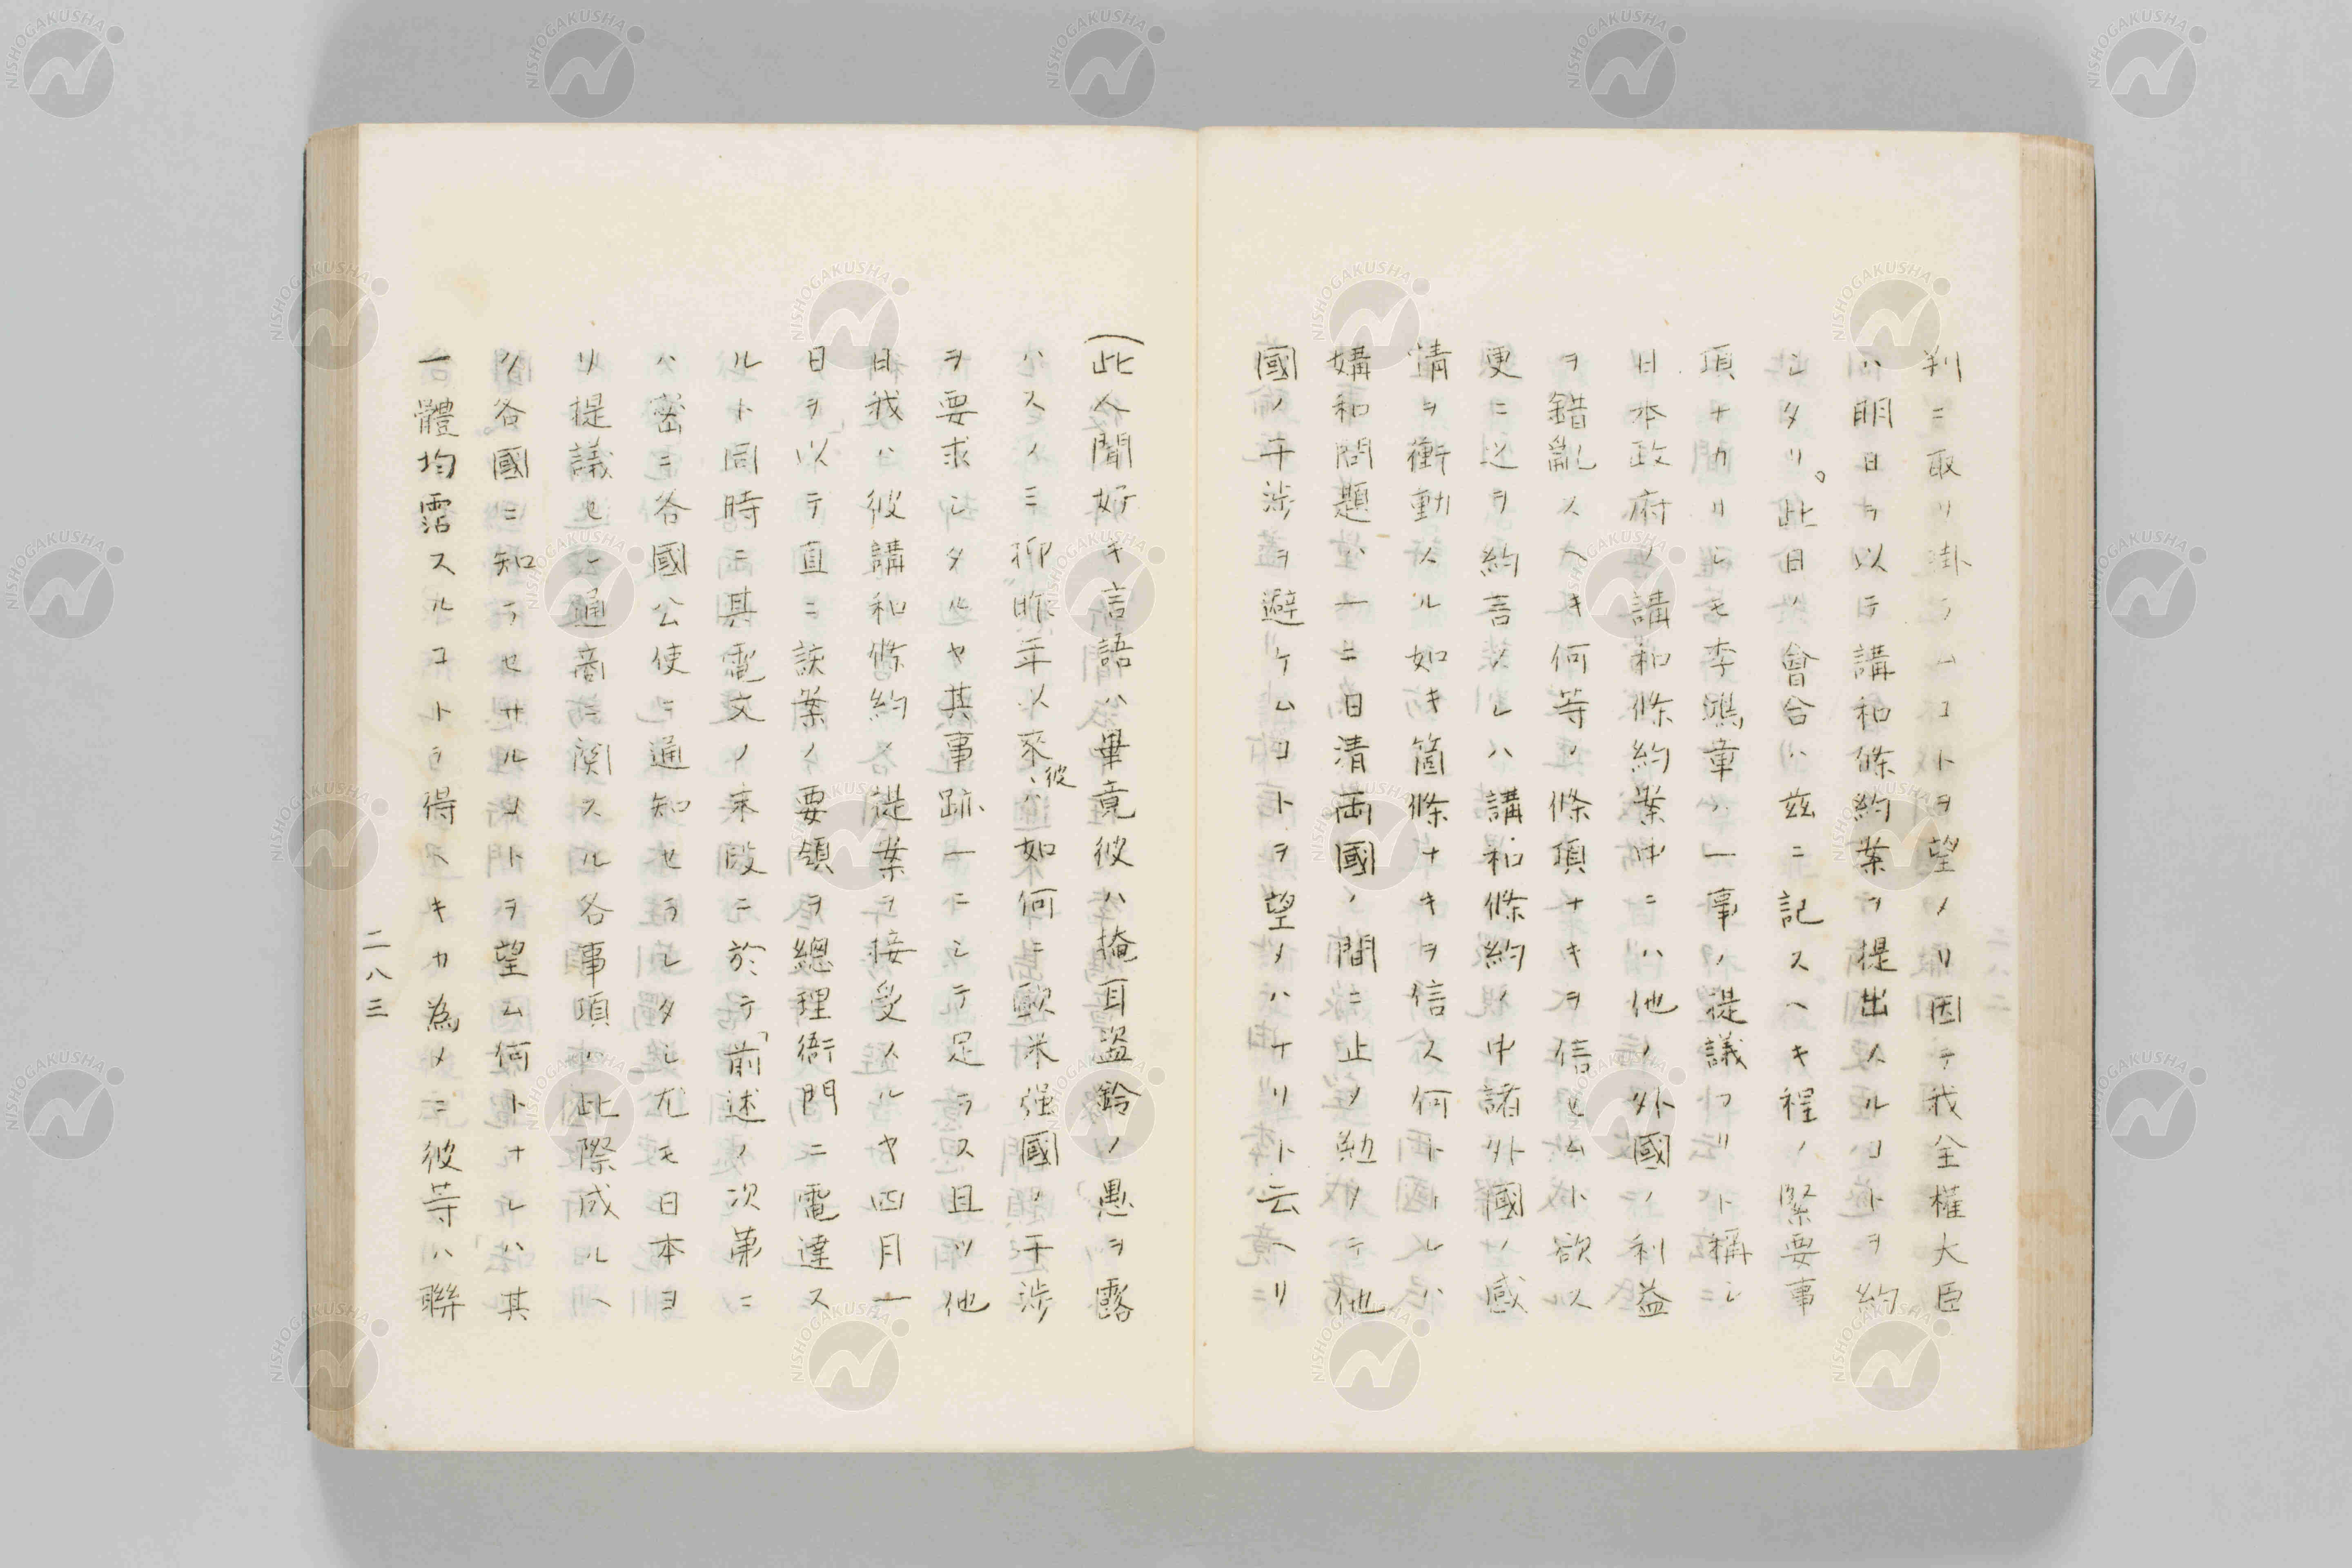 判ニ取リ掛ラムコトヲ望メリ因テ我全權大臣
ハ明日ヲ以テ講和條約案ヲ提出スルコトヲ約
シタリ。此日ノ會合ハ茲ニ記スヘキ程ノ緊要事
項ナカリシモ李鴻章ハ一事ノ提議アリト稱シ
日本政府ノ講和條約案中ニハ他ノ外國ノ利益
ヲ錯亂スヘキ何等ノ條項ナキヲ信セムト欲ス
更ニ之ヲ約言スレハ講和條約ノ中諸外國ノ感
情ヲ衝動スル如キ箇條ナキヲ信ス何トナレハ
媾和問題ハ一ニ日清両國ノ間ニ止メ勉メテ他
國ノ干渉ヲ避ケムコトヲ望メハナリト云ヘリ
(此人聞好キ言語ハ畢竟彼ハ掩耳盗鈴ノ愚ヲ露
ハスノミ抑昨年以來、彼ハ如何ニ歐米强國ノ干渉
ヲ要求シタルヤ其事跡一ニシテ足ラス且ツ他
日我ハ彼講和條約ノ提案ヲ接受スルヤ四月一
日ヲ以テ直ニ該案ノ要領ヲ總理衙門ニ電達ス
ルト同時ニ其電文ノ末段ニ於テ「前述ノ次第ニ
ハ密ニ各國公使ニ通知セラレタシ尤モ日本ヨ
リ提議セシ通商ニ関スル各事項ハ此際成ルヘ
ク各國ニ知ラセサルコトヲ望ム何トナレハ其
一體均霑スルコトヲ得ヘキカ為メニ彼等ハ聯
二八三